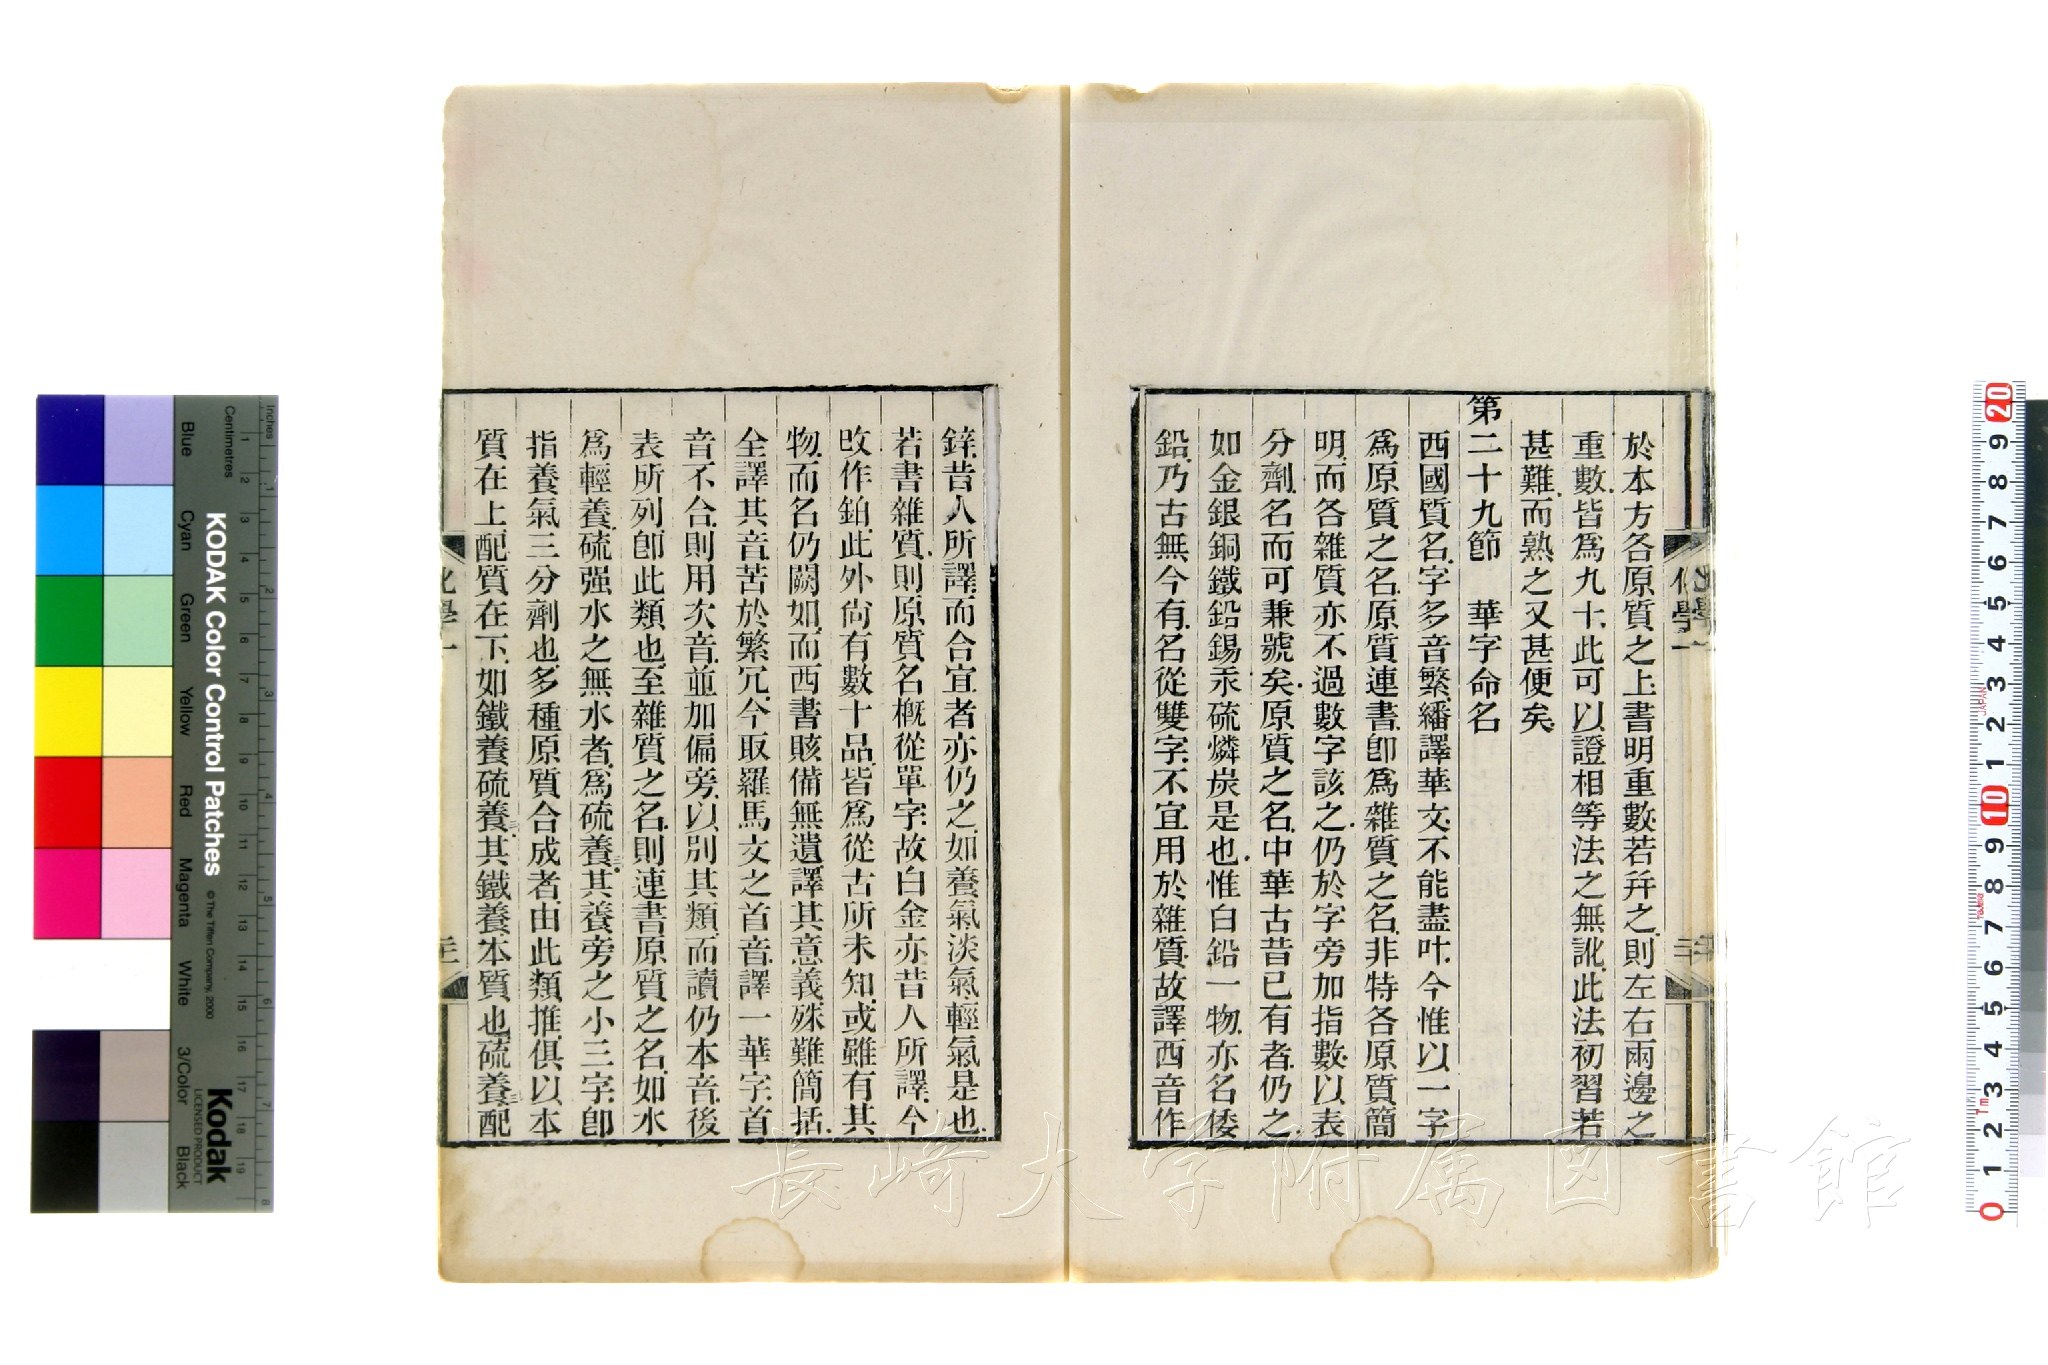 於本方各原質之上書明重數若幷之則左右兩邊之
重數皆爲九十此可以證相等法之無訛此法初習若
甚難而熟之又甚便矣
第二十九節　華字命名
西國質名字多音繁繙譯華文不能盡叶今惟以一字
爲原質之名原質連書卽爲雜質之名非特各原質簡
明而各雜質亦不過數字該之仍於字旁加指數以表
分劑名而可兼號矣原質之名中華古昔已有者仍之
如金銀銅鐵鉛錫汞硫燐炭是也惟白鉛一物亦名倭
鉛乃古無今有名從雙字不宜用於雜質故譯西音作
鋅昔人所譯而合宜者亦仍之如養氣淡氣輕氣是也
若書雜質則原質名槪從單字故白金亦昔人所譯今
改作鉑此外尙有數十品皆爲從古所未知或雖有其
物而名仍闕如而西書賅備無遺譯其意義殊難簡括
全譯其音苦於繁冗今取羅馬文之首音譯一華字首
音不合則用次音並加偏旁以別其類而讀仍本音後
表所列卽此類也至雜質之名則連書原質之名如水
爲輕養硫强水之無水者爲硫養三其養旁之小三字卽
指養氣三分劑也多種原質合成者由此類推俱以本
質在上配質在下如鐵養硫養三其鐵養本質也硫養三配
化學一
化學一
KODAK Color Control Patches
© The Tiffen Company, 2000
Kodak
LICENSED PRODUCT
Inches
Centimetres
Blue
Cyan
Green
Yellow
Red
Magenta
White
3/Color
Black
1 2 3 4 5 6 7 8 9 10 11 12 13 14 15 16 17 18 19
1 2 3 4 5 6 7 8
20 9 8 7 6 5 4 3 2 1 10 9 8 7 6 5 4 3 2 1 0
JAPAN
長崎大学附属図書館